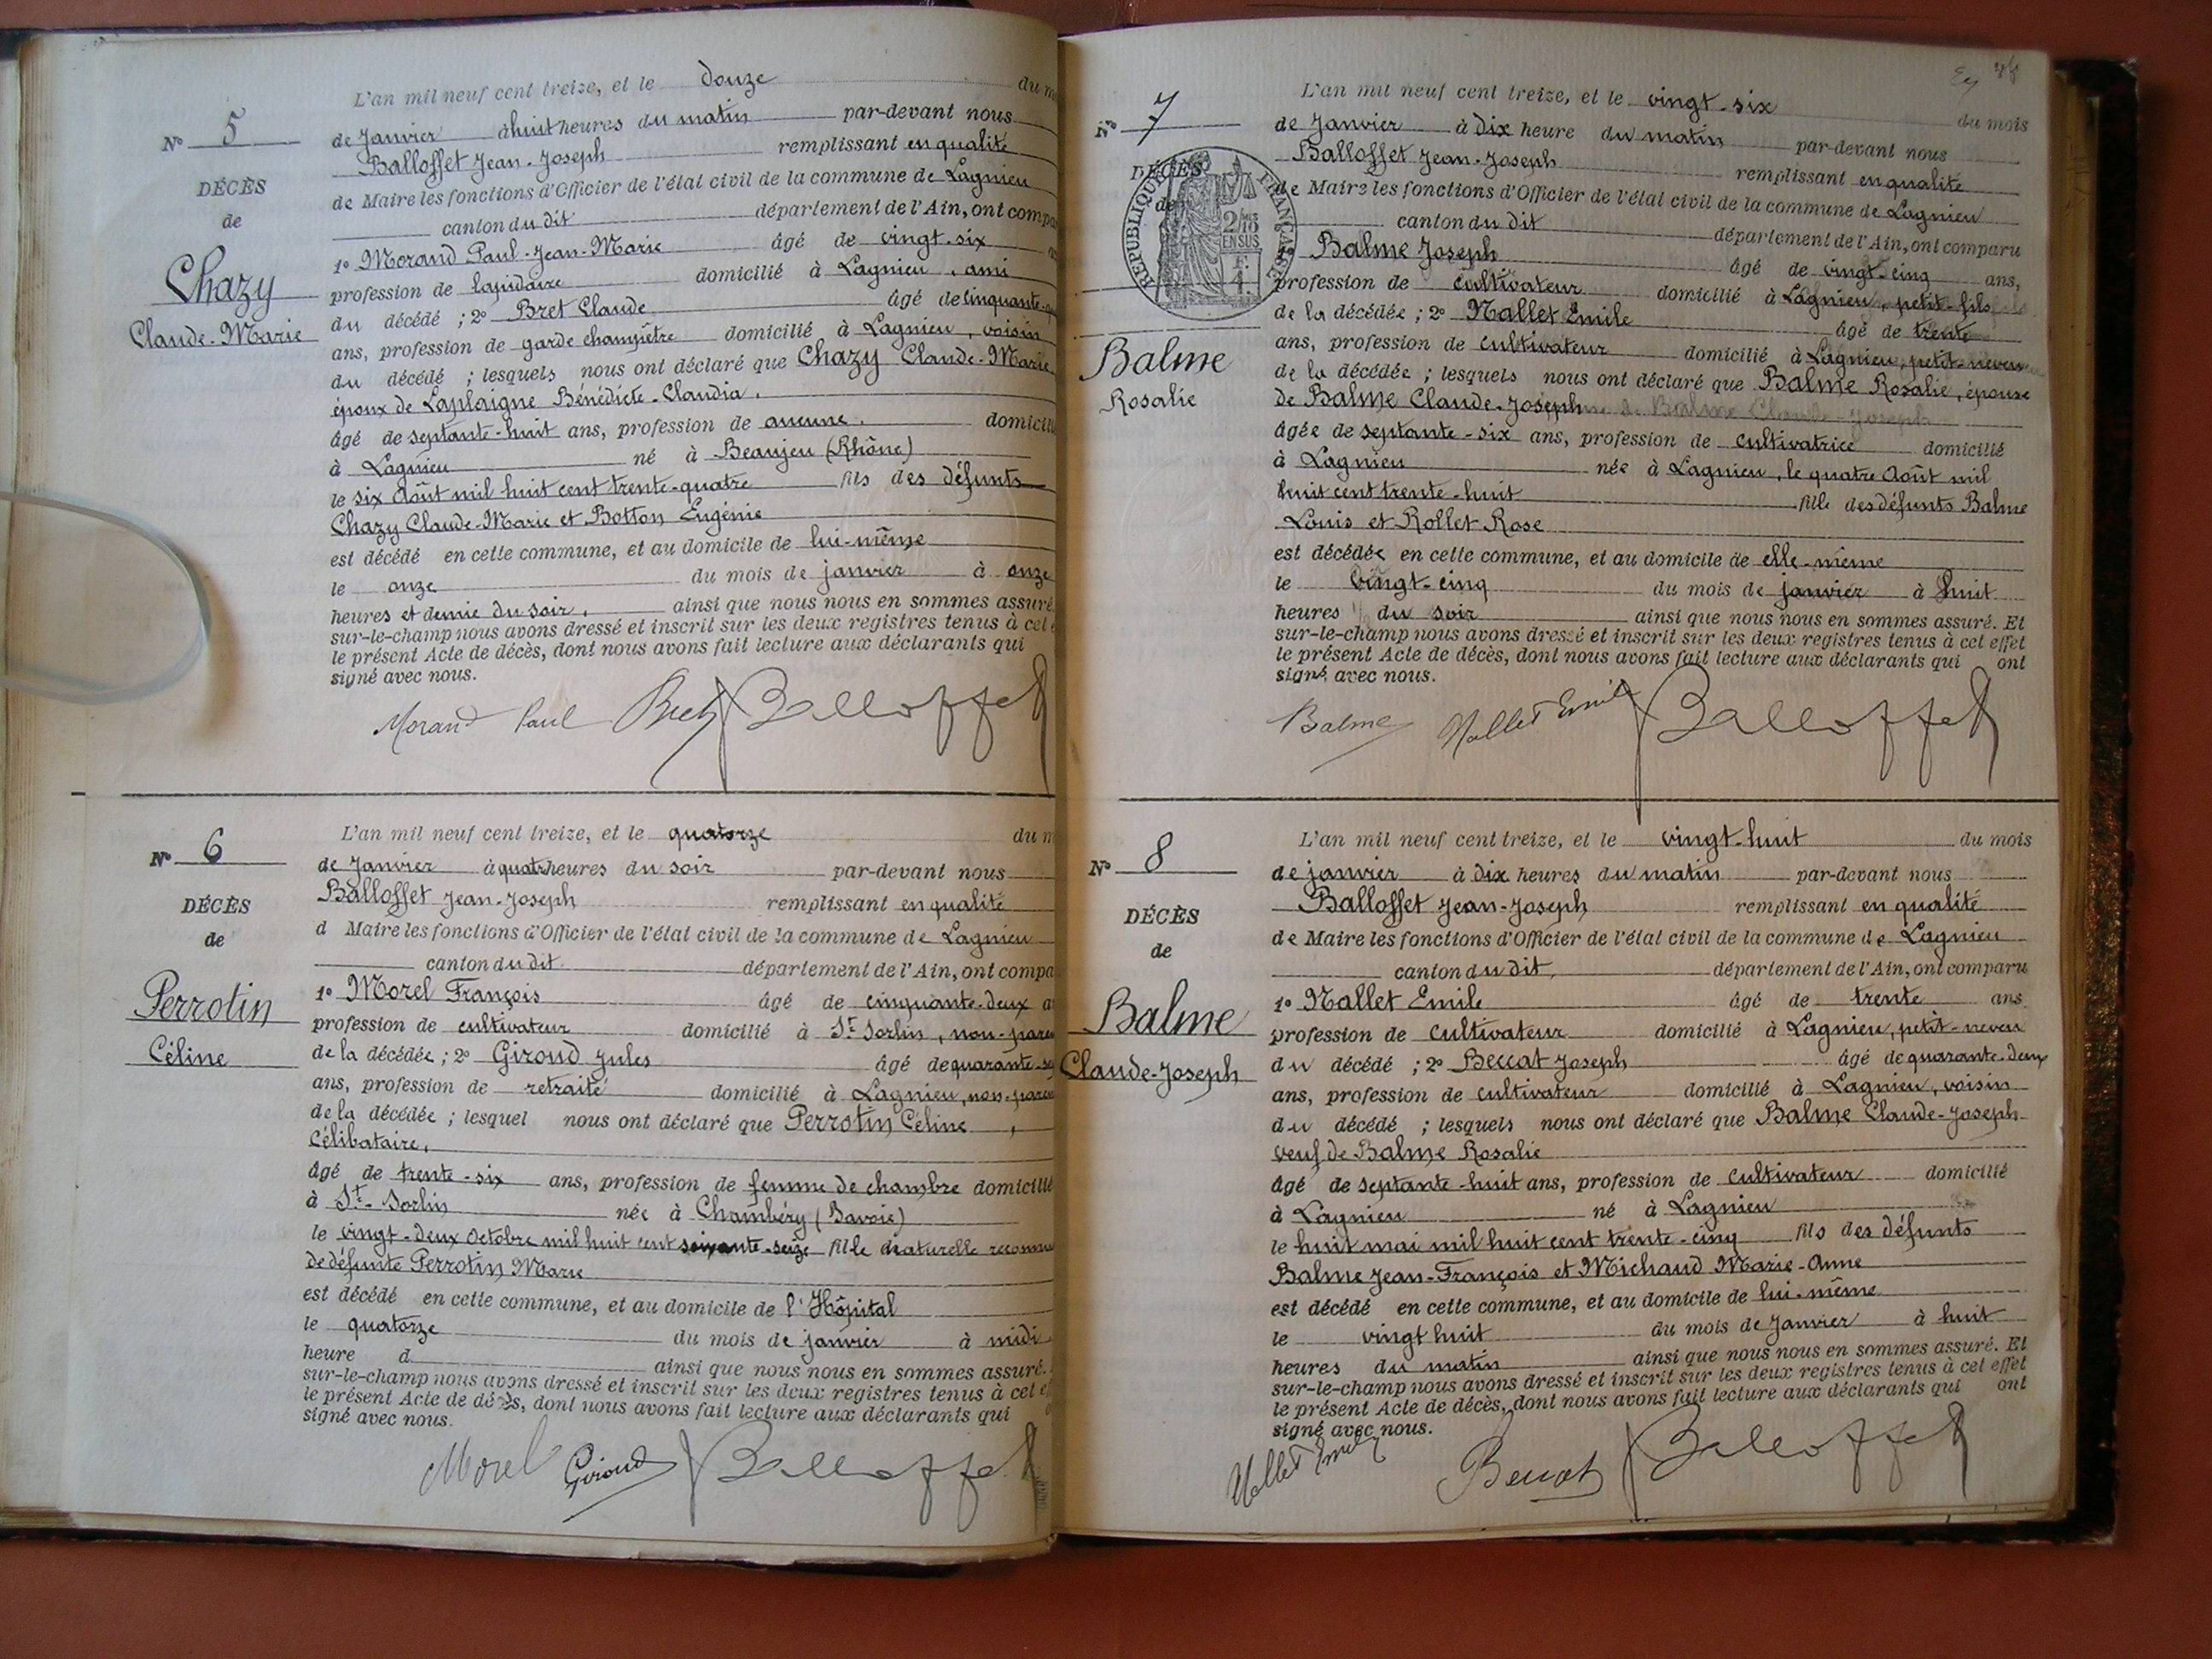 L'an mil neuf cent treize, et le douze du m
N° 5
de Janvier à huit heures du matin par-devant nous
Balloffet Jean-Joseph remplissant en qualité
DÉCÈS
de Maire les fonctions d'Officier de l'état civil de la commune de Lagnieu
de
canton du dit département de l'Ain, ont compa
1° Morand Paul-Jean-Marie âgé de vingt-six
Chazy
profession de lapidaire domicilié à Lagnieu, ami
du décédé ; 2° Bret Claude âgé de cinquante
Claude-Marie
ans, profession de garde champêtre domicilié à Lagnieu, voisin
du décédé ; lesquels nous ont déclaré que Chazy Claude-Marie
époux de Laplaigne Bénédicte-Claudia,
âgé de septante-huit ans, profession de aucune, domicili
à Lagnieu né à Beaujeu (Rhône)
le six Août mil huit cent trente-quatre fils des défunts
Chazy Claude-Marie et Botton Eugénie
est décédé en cette commune, et au domicile de lui-même
le onze du mois de janvier à onze
heures et demie du soir, ainsi que nous nous en sommes assuré.
sur-le-champ nous avons dressé et inscrit sur les deux registres tenus à cet e
le présent Acte de décès, dont nous avons fait lecture aux déclarants qui
signé avec nous.
Morand Paul Bret Balloffet
L'an mil neuf cent treize, et le quatorze du m
N° 6
de Janvier à quatre heures du soir par-devant nous
Balloffet Jean-Joseph remplissant en qualité
DÉCÈS
d Maire les fonctions d'Officier de l'état civil de la commune de Lagnieu
de
canton du dit département de l'Ain, ont compa
1° Morel François âgé de cinquante-deux a
Perrotin
profession de cultivateur domicilié à St Sorlin, non-paren
Céline
de la décédée ; 2° Giroud Jules âgé de quarante-se
ans, profession de retraité domicilié à Lagnieu, non-paren
de la décédée ; lesquel nous ont déclaré que Perrotin Céline,
Célibataire,
âgé de trente-six ans, profession de femme de chambre domicilié
à St-Sorlin née à Chambéry (Savoie)
le vingt-deux Octobre mil huit cent soixante-seize fille naturelle reconnu
de défunte Perrotin Marie
est décédé en cette commune, et au domicile de l'Hôpital
le quatorze du mois de janvier à midi
heure d ainsi que nous nous en sommes assuré.
sur-le-champ nous avons dressé et inscrit sur les deux registres tenus à cet ef
le présent Acte de décès, dont nous avons fait lecture aux déclarants qui
signé avec nous.
Morel Giroud Balloffet
L'an mil neuf cent treize, et le vingt-six du mois
N° 7
de Janvier à dix heure du matin par-devant nous
Balloffet Jean-Joseph remplissant en qualité
DÉCÈS
de Maire les fonctions d'Officier de l'état civil de la commune de Lagnieu
de
RÉPUBLIQUE FRANÇAISE
2/10 EN SUS
canton du dit département de l'Ain, ont comparu
1° Balme Joseph âgé de vingt-cinq ans,
profession de cultivateur domicilié à Lagnieu, petit-fils
de la décédée ; 2° Mallet Emile âgé de trente
Balme
ans, profession de cultivateur domicilié à Lagnieu, petit-neveu
de la décédée ; lesquels nous ont déclaré que Balme Rosalie, épouse
Rosalie
de Balme Claude-Joseph
âgée de septante-six ans, profession de cultivatrice domicilié
à Lagnieu née à Lagnieu, le quatre Août mil
huit cent trente-huit fille des défunts Balme
Louis et Rollet Rose
est décédée en cette commune, et au domicile de elle-même
le vingt-cinq du mois de janvier à huit
heures ½ du soir ainsi que nous nous en sommes assuré. Et
sur-le-champ nous avons dressé et inscrit sur les deux registres tenus à cet effet
le présent Acte de décès, dont nous avons fait lecture aux déclarants qui ont
signé avec nous.
Balme Mallet Emile Balloffet
L'an mil neuf cent treize, et le vingt-huit du mois
N° 8
de janvier à dix heures du matin par-devant nous
Balloffet Jean-Joseph remplissant en qualité
DÉCÈS
de Maire les fonctions d'Officier de l'état civil de la commune de Lagnieu
de
canton du dit, département de l'Ain, ont comparu
1° Mallet Emile âgé de trente ans
Balme
profession de cultivateur domicilié à Lagnieu, petit-neveu
Claude-Joseph
du décédé ; 2° Beccat Joseph âgé de quarante-deux
ans, profession de cultivateur domicilié à Lagnieu, voisin
du décédé ; lesquels nous ont déclaré que Balme Claude-Joseph
veuf de Balme Rosalie
âgé de septante-huit ans, profession de cultivateur domicilié
à Lagnieu né à Lagnieu
le huit mai mil huit cent trente-cinq fils des défunts
Balme Jean-François et Michaud Marie-Anne
est décédé en cette commune, et au domicile de lui-même
le vingt huit du mois de Janvier à huit
heures du matin ainsi que nous nous en sommes assuré. Et
sur-le-champ nous avons dressé et inscrit sur les deux registres tenus à cet effet
le présent Acte de décès, dont nous avons fait lecture aux déclarants qui ont
signé avec nous.
Mallet Emile Beccat Balloffet